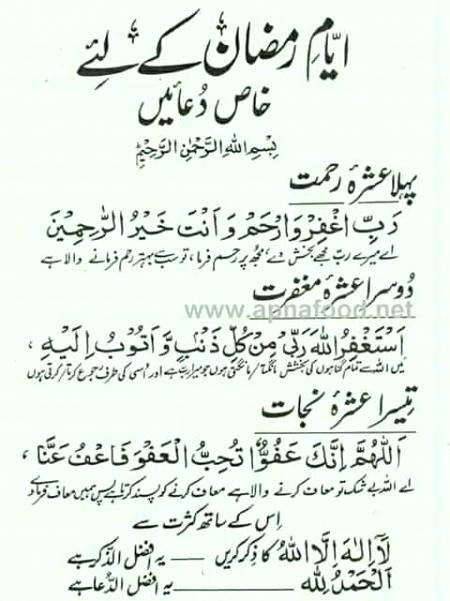 ایّامِ رمضان کے لئے
خاص دُعائیں
بِسْمِ اللهِ الرَّحْمٰنِ الرَّحِيْمِ
پہلا عشرۂ رحمت
رَبِّ اغْفِرْ وَارْحَمْ وَاَنْتَ خَيْرُ الرّٰحِمِيْنَ
اے میرے رب مجھے بخش دے مجھ پر رحم فرما، تو سب سے بہتر رحم فرمانے والا ہے
دُوسرا عشرۂ مغفرت
www.apnafood.net
اَسْتَغْفِرُ اللهَ رَبِّیْ مِنْ كُلِّ ذَنْۢبٍ وَّاَتُوْبُ اِلَيْهِ،
میں اللہ سے تمام گناہوں کی بخشش مانگتا/مانگتی ہوں جو میرا رب ہے اور اسی کی طرف رجوع کرتا/کرتی ہوں
تیسرا عشرۂ نجات
اَللّٰهُمَّ اِنَّكَ عَفُوٌّ تُحِبُّ الْعَفْوَ فَاعْفُ عَنَّا،
اے اللہ بے شک تو معاف کرنے والا ہے معاف کرنے کو پسند کرتا ہے پس ہمیں معاف فرما دے
اِس کے ساتھ کثرت سے
لَآ اِلٰهَ اِلَّا اللهُ کا ذکر کریں — یہ افضل الذّکر ہے
اَلْحَمْدُ لِلّٰه — یہ افضل الدُّعا ہے